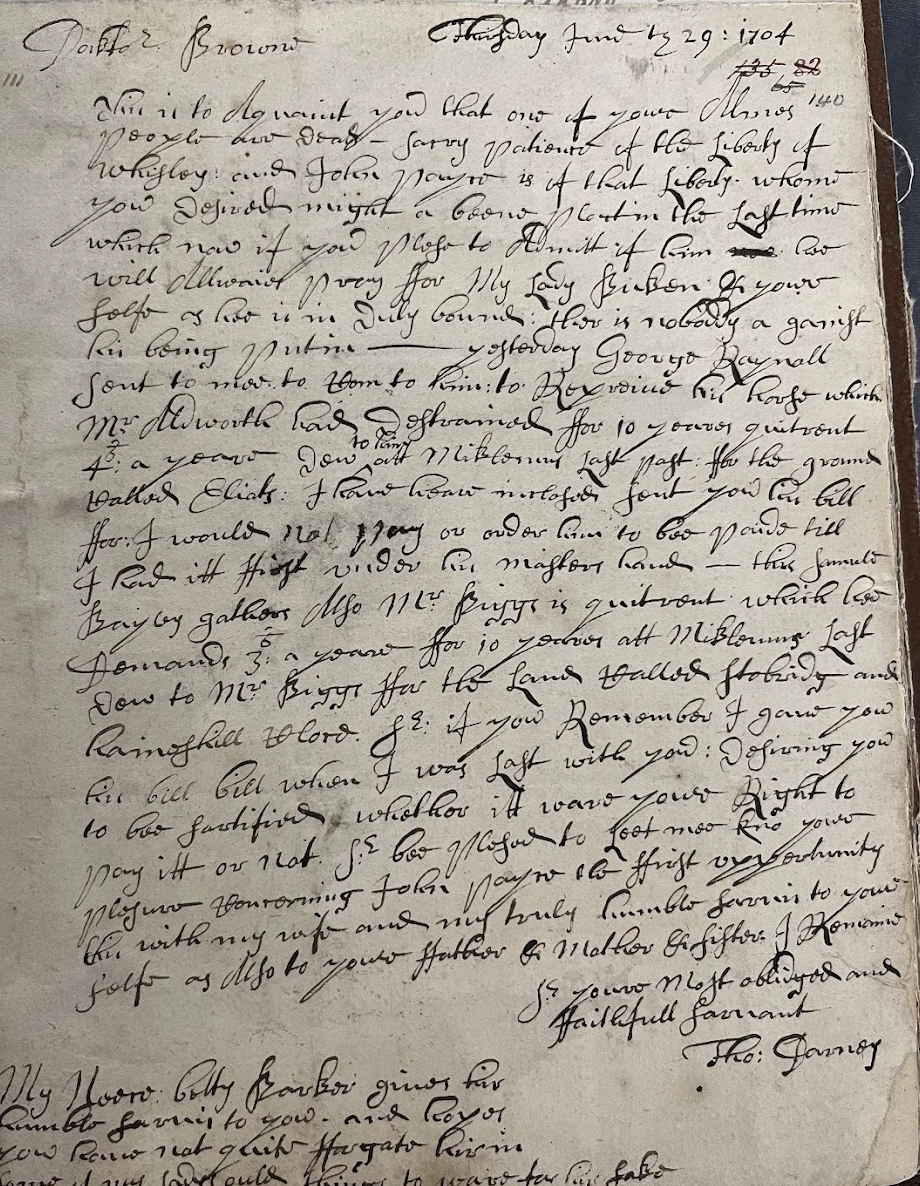 Docktor Browne Thursday June ye 29: 1704
135 82
65
111 140
this is to Aquaint you that one of youre Almes
people are dead – Harry patience of the Liberty of
Whisley: and John payce is of that Liberty. whome
you desired might a beene plact in the Last time
which now if you plese to Admitt of him hee
will Allwaies pray ffor My Lady Bicken & youre
selfe as hee is in duty bound: ther is nobody a gainst
his being putin —— yesterday George Raynoll
sent to mee. to Com to him: to Repreive his horse which
Mr Aldworth had Destrained ffor 10 yeares quitrent
4s: a yeare dew to him att Miklemus Last past: ffor the ground
Called Eliots: I have heare inclosed sent you his bill
ffor: I would not pay or order him to bee paide till
I had itt ffirst under his masters hand — this Samule
Bayley gathers Also Mr Biggs is quitrent which hee
Demands 3: a yeare ffor 10 yeares att Miklemus Last
dew to Mr Biggs ffor the Land Called Stobridg and
haineshill Close. Sr: if you Remember I gave you
his bill bill when I was Last with you: desiring you
to bee sartified whether itt ware youre Right to
pay itt or not. Sr bee plesed to Leet mee kno youre
plesure Concerning John payce the ffirst oppertunity
this with my wife and my truly humble sarvis to youre
selfe as Also to youre ffather & Mother & sister I Remaine
Sr youre Most obliidged and
ffaithfull sarvant
Tho: Darney
My Neece betty Barker gives hir
humble sarvis to you. and hopes
you have not quite fforgate hir in
things to ware for hir sake